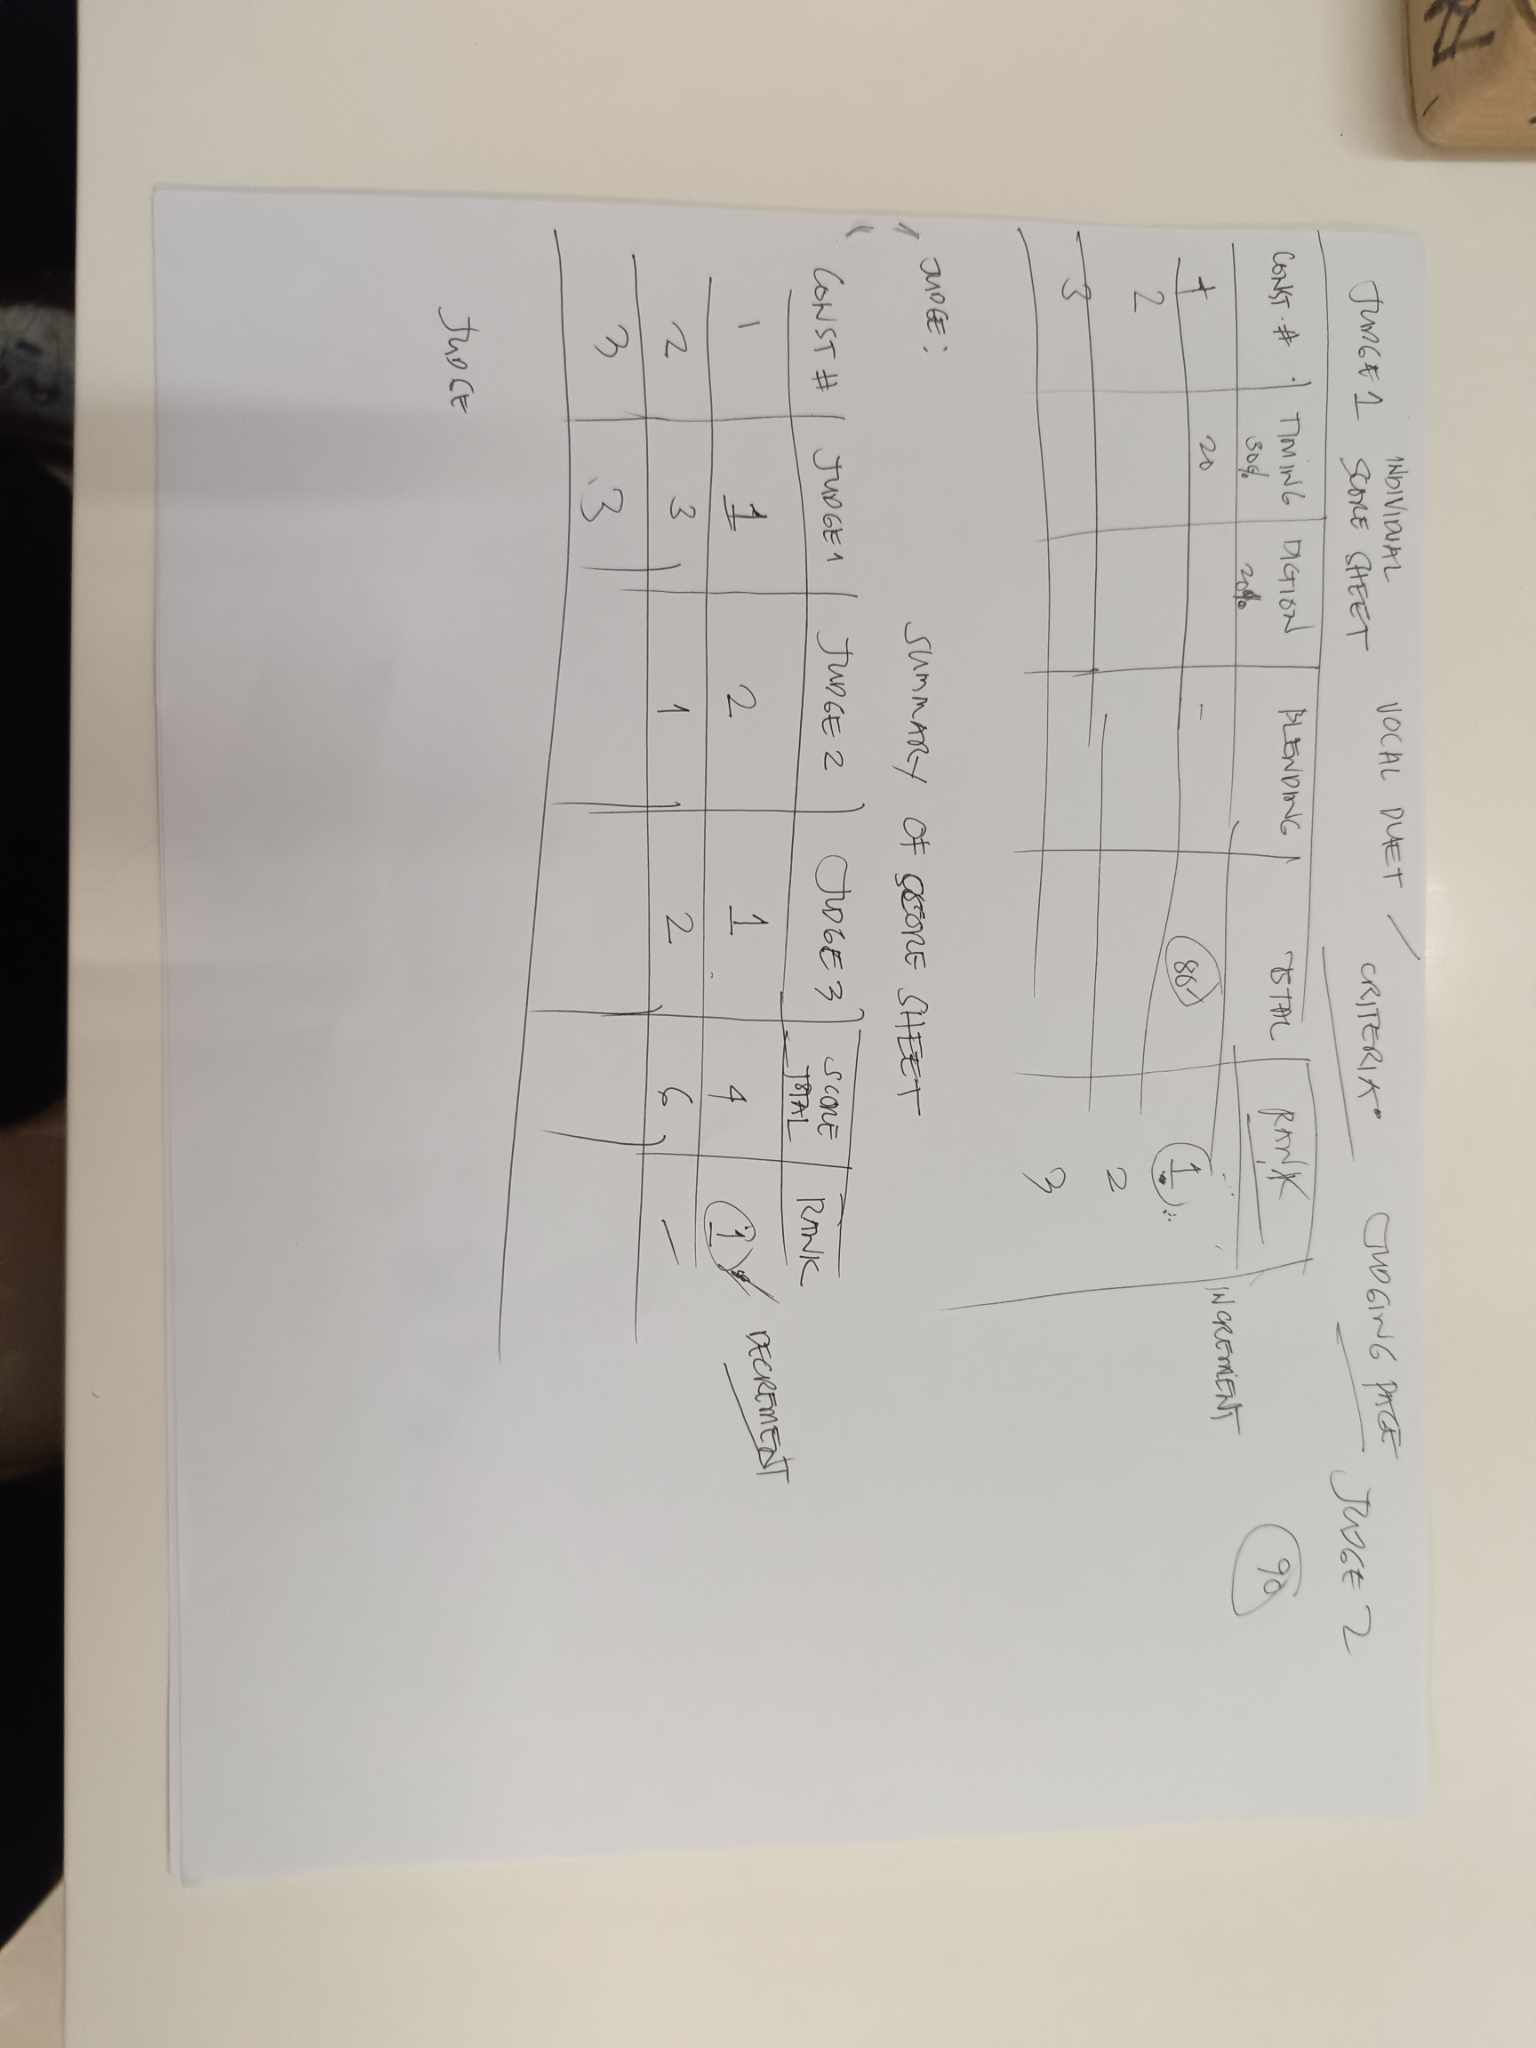 JUDGE 1 INDIVIDUAL SCORE SHEET VOCAL DUET / CRITERIA. JUDGING PAGE JUDGE 2
CONST. # TIMING 30% DICTION 20% BLENDING TOTAL RANK
90
INCREMENT
1 20 - 86 1
2 2
3 3
JUDGE:
SUMMARY OF SCORE SHEET
CONST # JUDGE 1 JUDGE 2 JUDGE 3 SCORE TOTAL RANK
1 1 2 1 4 1 DECREMENT
2 3 1 2 6 -
3 3
JUDGE